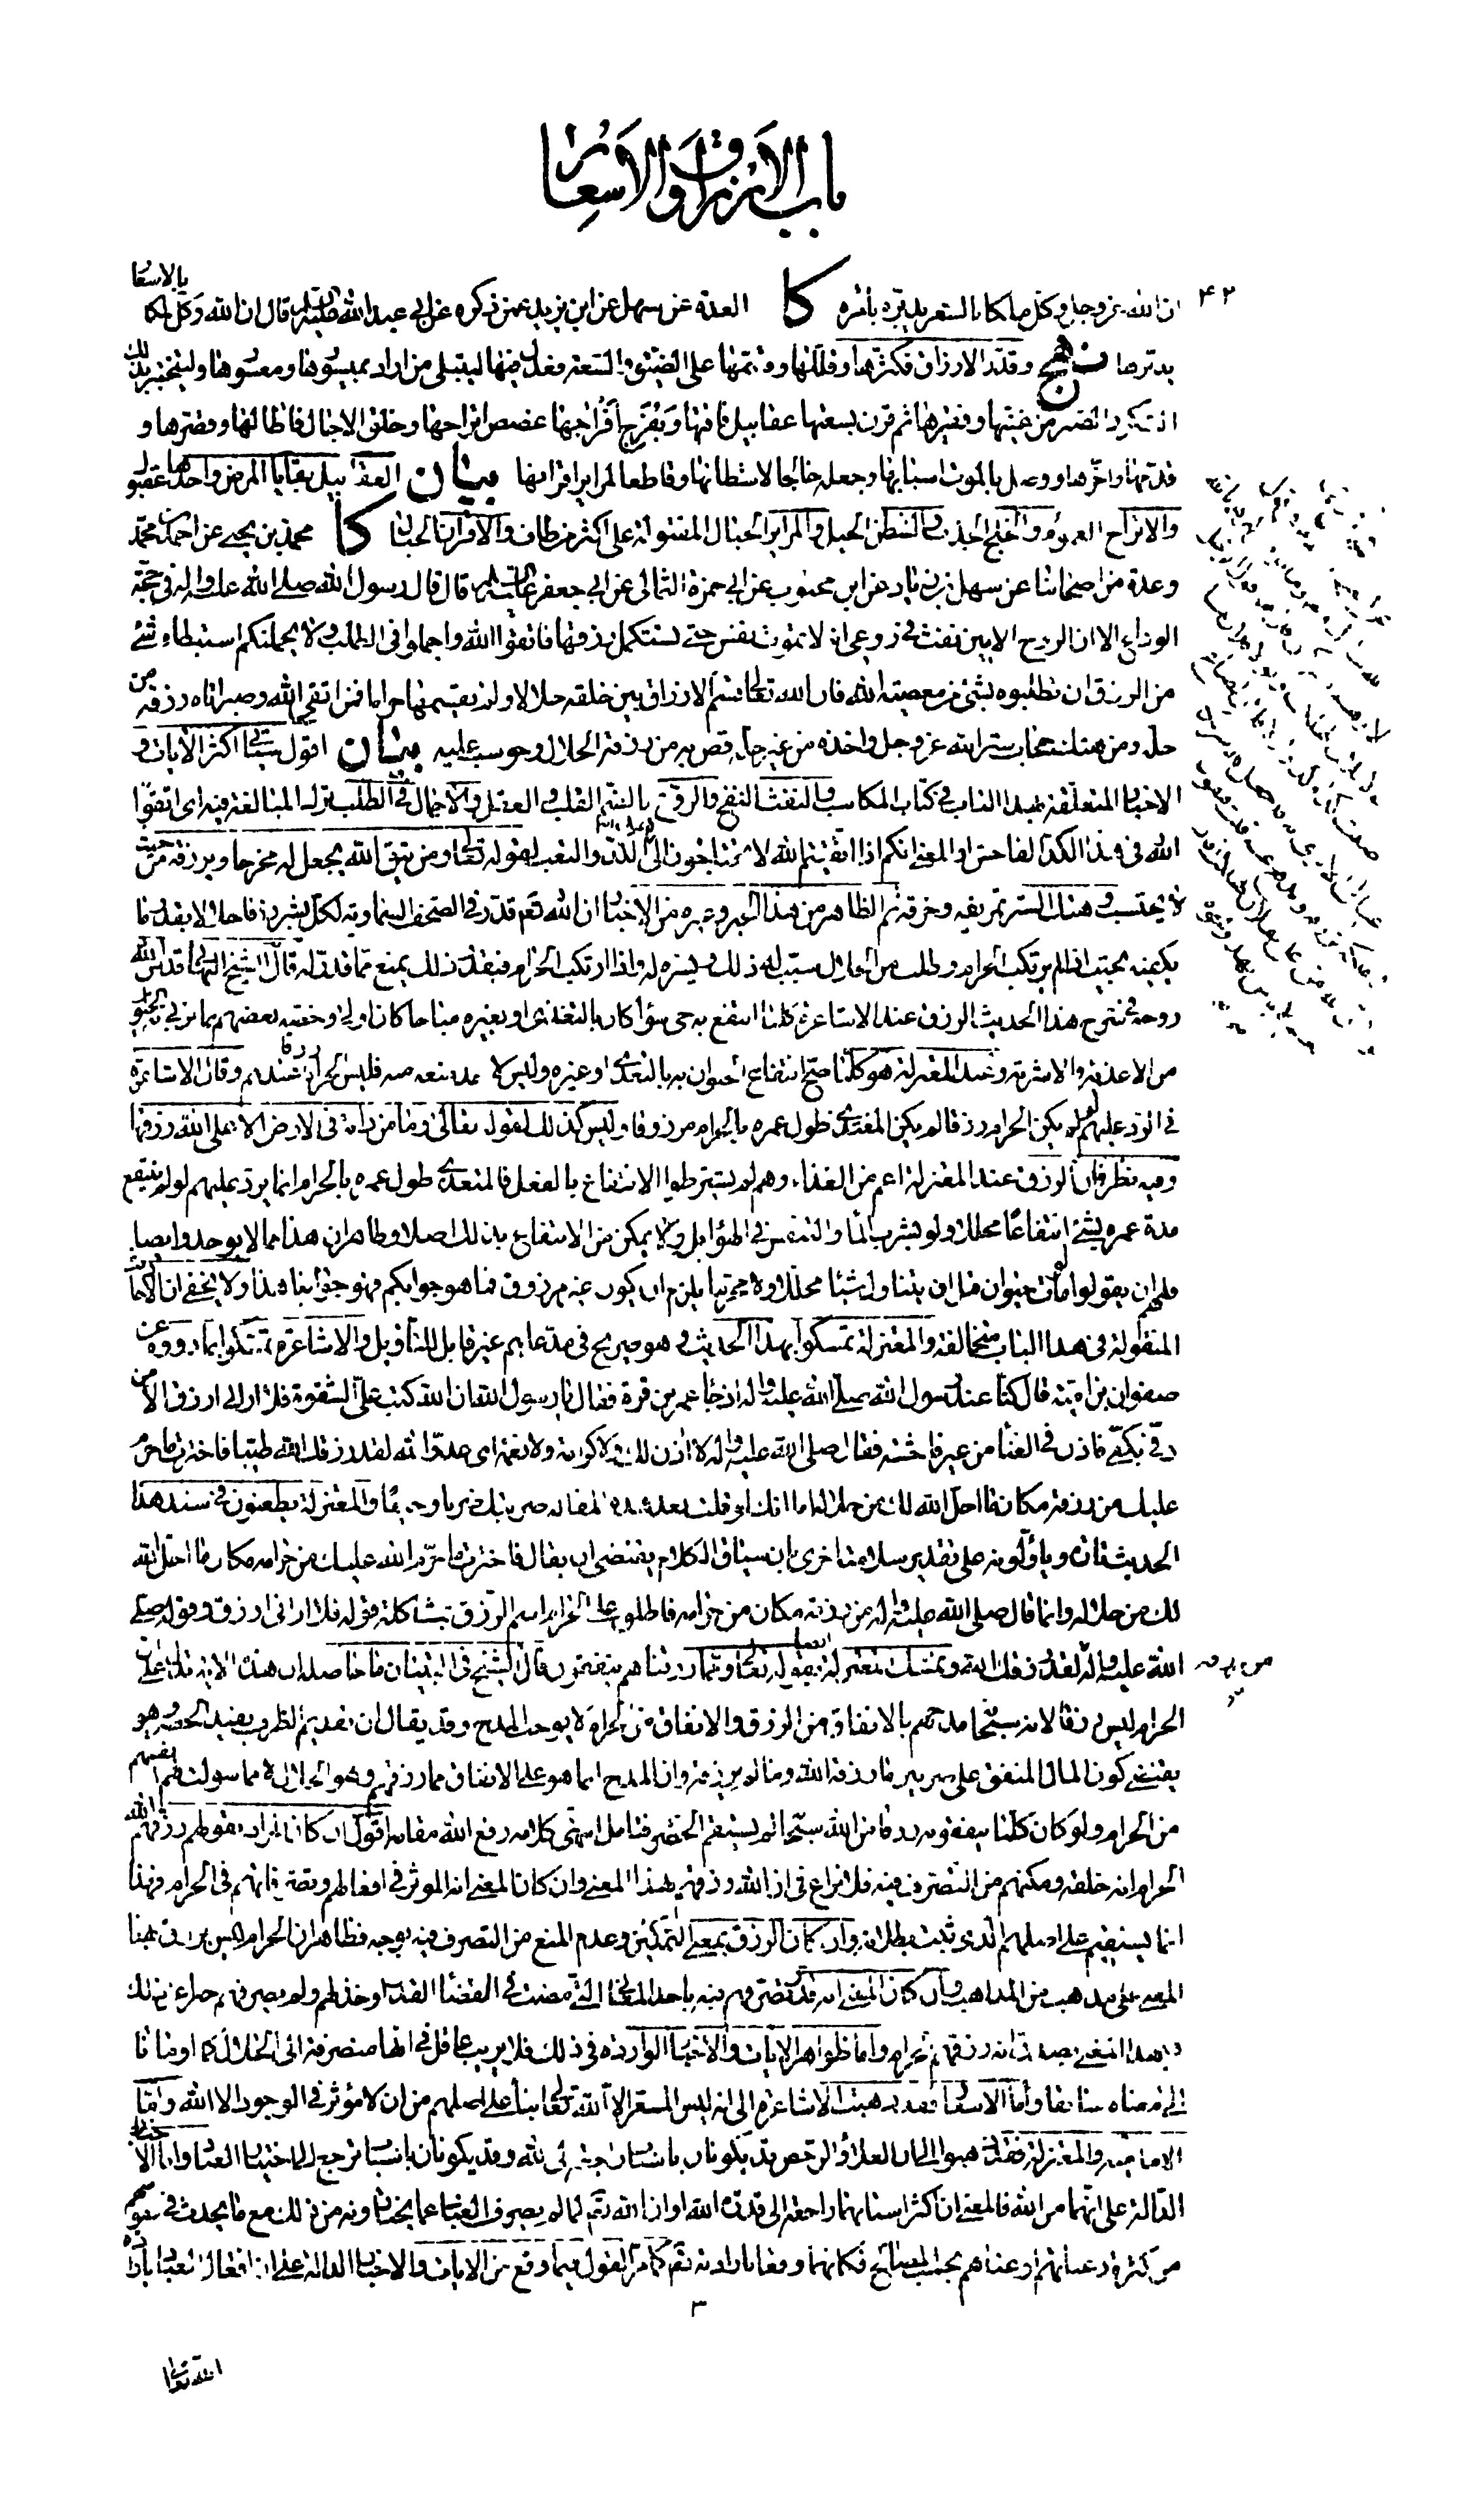 باب الارزاق والاسعار
ان الله عز وجل وكل ملكا بالسعر يدبره بأمره كا العدة عن سهل عن ابن يزيد عمن ذكره عن ابي عبد الله عليه السلام قال ان الله وكل ملكا بالاسعار ۴۲
يدبرها نهج وقدر الارزاق فكثرها وقللها وقسمها على الضيق والسعة فعدل فيها ليبتلي من اراد بميسورها ومعسورها وليختبر بذلك
الشكر والصبر من غنيها وفقيرها ثم قرن بسعتها عقابيل فاقتها وبفرج أفراجها غصص اتراحها وخلق الاجال فاطالها وقصرها و
قدمها واخرها ووصل بالموت اسبابها وجعله خالجا لاشطانها وقاطعا لمراير اقرانها بيان العقابيل بقايا المرض واحدها عقبول
والاتراح الغموم والخلج الجذب والشطن الحبل والمراير الحبال المفتولة على اكثر من طاق والاقران الحبال كا محمد بن يحيى عن احمد بن محمد
وعدة من اصحابنا عن سهل بن زياد عن ابن محبوب عن ابي حمزة الثمالي عن ابي جعفر عليه السلام قال قال رسول الله صلى الله عليه واله في حجة
الوداع الا ان الروح الامين نفث في روعي انه لا تموت نفس حتى تستكمل رزقها فاتقوا الله واجملوا في الطلب ولا يحملنكم استبطاء شئ
من الرزق ان تطلبوه بشئ من معصية الله فان الله تعالى قسم الارزاق بين خلقه حلالا ولم يقسمها حراما فمن اتقى الله وصبر اتاه رزقه من
حله ومن هتك حجاب ستر الله عز وجل واخذه من غير حله قص به من رزقه الحلال وحوسب عليه بيان اقول سيأتي اكثر الايات و
الاخبار المتعلقة بهذا الباب في كتاب المكاسب والنفث النفخ والروع بالضم القلب والعقل والاجمال في الطلب ترك المبالغة فيه اى اتقوا
الله في هذا الكد الفاحش او المعنى انكم اذا اتقيتم الله لا تحتاجون الى هذا الكد والتعب لقوله تعالى ومن يتق الله يجعل له مخرجا ويرزقه من حيث
لا يحتسب وهتك الستر تمزيقه وخرقه ثم الظاهر من هذا الخبر وغيره من الاخبار ان الله تعم قدر في الصحف السماوية لكل بشر رزقا حلالا بقدر ما
يكفيه بحيث اذا لم يرتكب الحرام وطلب من الحلال سبب له ذلك ويسره له واذا ارتكب الحرام فبقدر ذلك يمنع مما قدر له قال الشيخ البهائي قدس الله
روحه في شرح هذا الحديث الرزق عند الاشاعرة كلما انتفع به حي سواء كان بالتغذي او بغيره مباحا كان اولا وخصه بعضهم بما تربى به الحيوان
من الاغذية والاشربة وعند المعتزلة هو كلما صح انتفاع الحيوان به بالتغذي او غيره وليس لاحد منعه منه فليس الحرام رزقا عندهم وقال الاشاعرة
في الرد عليهم لو لم يكن الحرام رزقا لم يكن المغتذي طول عمره بالحرام مرزوقا وليس كذلك لقوله تعالى وما من دابة في الارض الا على الله رزقها
وفيه نظر فان الرزق عند المعتزلة اعم من الغذاء وهم لم يشترطوا الانتفاع بالفعل فالمغتذي طول عمره بالحرام انما يرد عليهم لو لم ينتفع
مدة عمره بشئ انتفاعا محللا ولو بشرب الماء والتنفس في الهواء بل ولا يمكن من الانتفاع بذلك اصلا وظاهر ان هذا مما لا يوجد وايضا
فلهم ان يقولوا لو مات حيوان قبل ان يتناول شيئا محللا ولا محرما يلزم ان يكون غير مرزوق فما هو جوابكم فهو جوابنا هذا ولا يخفى ان الاحاديث
المنقولة في هذا الباب متخالفة والمعتزلة تمسكوا بهذا الحديث وهو صريح في مدعاهم غير قابل للتأويل والاشاعرة تمسكوا بما رووه عن
صفوان بن امية قال كنا عند رسول الله صلى الله عليه واله اذ جاء عمر بن قرة فقال يا رسول الله ان الله كتب علي الشقوة فلا اراني ارزق الا من
دفي بكفي فاذن في الغناء من غير فاحشة فقال صلى الله عليه واله لا اذن لك ولا كرامة ولا نعمة اى عدو الله لقد رزقك الله طيبا فاخترت ما حرم
عليك من رزقه مكان ما احل الله لك من حلاله اما انك لو قلت بعد هذه المقالة ضربتك ضربا وجيعا والمعتزلة يطعنون في سند هذا
الحديث تارة ويأولونه على تقدير سلامته اخرى بان سياق الكلام يقتضي ان يقال فاخترت ما حرم الله عليك من حرامه مكان ما احل الله
لك من حلاله وانما قال صلى الله عليه واله من رزقه مكان من حرامه فاطلق على الحرام اسم الرزق بمشاكلة قوله فلا اراني ارزق وقوله صلى
الله عليه واله لقد رزقك الله وتمسك المعتزلة ايضا بقوله تعالى ومما رزقناهم ينفقون قال الشيخ في التبيان ما حاصله ان هذه الاية تدل على ان
الحرام ليس رزقا لانه سبحانه مدحهم بالانفاق من الرزق والانفاق من الحرام لا يوجب المدح وقد يقال ان تقديم الظرف يفيد الحصر وهو
يقتضي كون المال المنفق على ضربين ما رزقه الله وما لم يرزقه وان المدح انما هو على الانفاق مما رزقهم وهو الحلال لا مما سولت لهم انفسهم
من الحرام ولو كان كلما ينفقونه رزقا من الله سبحانه لم يستقم الحصر فتامل انتهى كلامه رفع الله مقامه اقول ان كان المراد بقولهم رزقهم الله
الحرام انه خلقه ومكنهم من التصرف فيه فلا نزاع في ان الله رزقهم بهذا المعنى وان كان المعنى انه الموثر في افعالهم وتصرفاتهم في الحرام فهذا
انما يستقيم على اصلهم الذي ثبت بطلانه وان كان الرزق بمعنى التمكين وعدم المنع من التصرف فيه بوجه فظاهر ان الحرام ليس برزق بهذا
المعنى على مذهب من المذاهب وان كان المعنى انه قدر تصرفهم فيه باحد المعاني التي مضت في القضاء والقدر او خذلهم ولم يصرفهم جبرا عن ذلك
فبهذا المعنى يصدق انه رزقهم الحرام واما ظواهر الايات والاخبار الواردة في ذلك فلا يريب عاقل في انها منصرفة الى الحلال كما اومأنا
الى معناه سابقا واما الاسعار فقد ذهبت الاشاعرة الى انه ليس المسعر الا الله تعالى بناء على اصلهم من ان لا مؤثر في الوجود الا الله واما
الامامية والمعتزلة فقد ذهبوا الى ان الغلاء والرخص قد يكونان باسباب راجعة الى الله وقد يكونان باسباب ترجع الى اختيار العباد واما الاخبار
الدالة على انهما من الله فالمعنى ان اكثر اسبابهما راجعة الى قدرة الله او ان الله تعم لما لم يصرف العباد عما يختارونه من ذلك مع ما يحدث في نفوسهم
من كثرة رغباتهم او غناهم بحسب المصالح فكانهما وقعا بارادته تعم كما مر القول فيما وقع من الايات والاخبار الدالة على ان افعال العباد بارادة
۳
الله تعالى